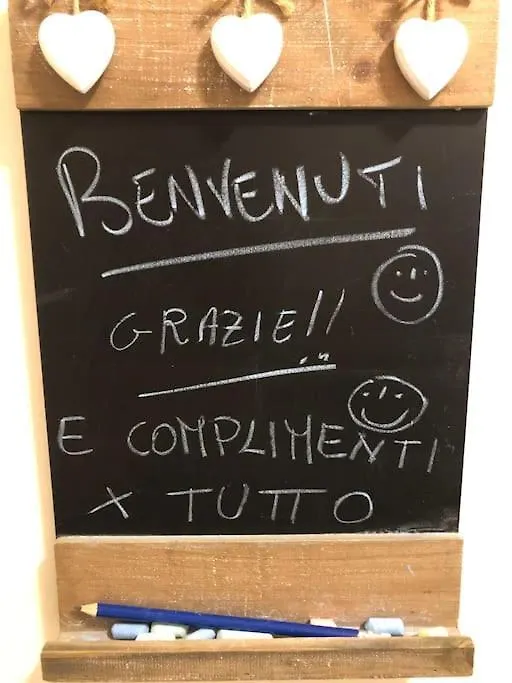 BENVENUTI
GRAZIE!!
E COMPLIMENTI
X TUTTO